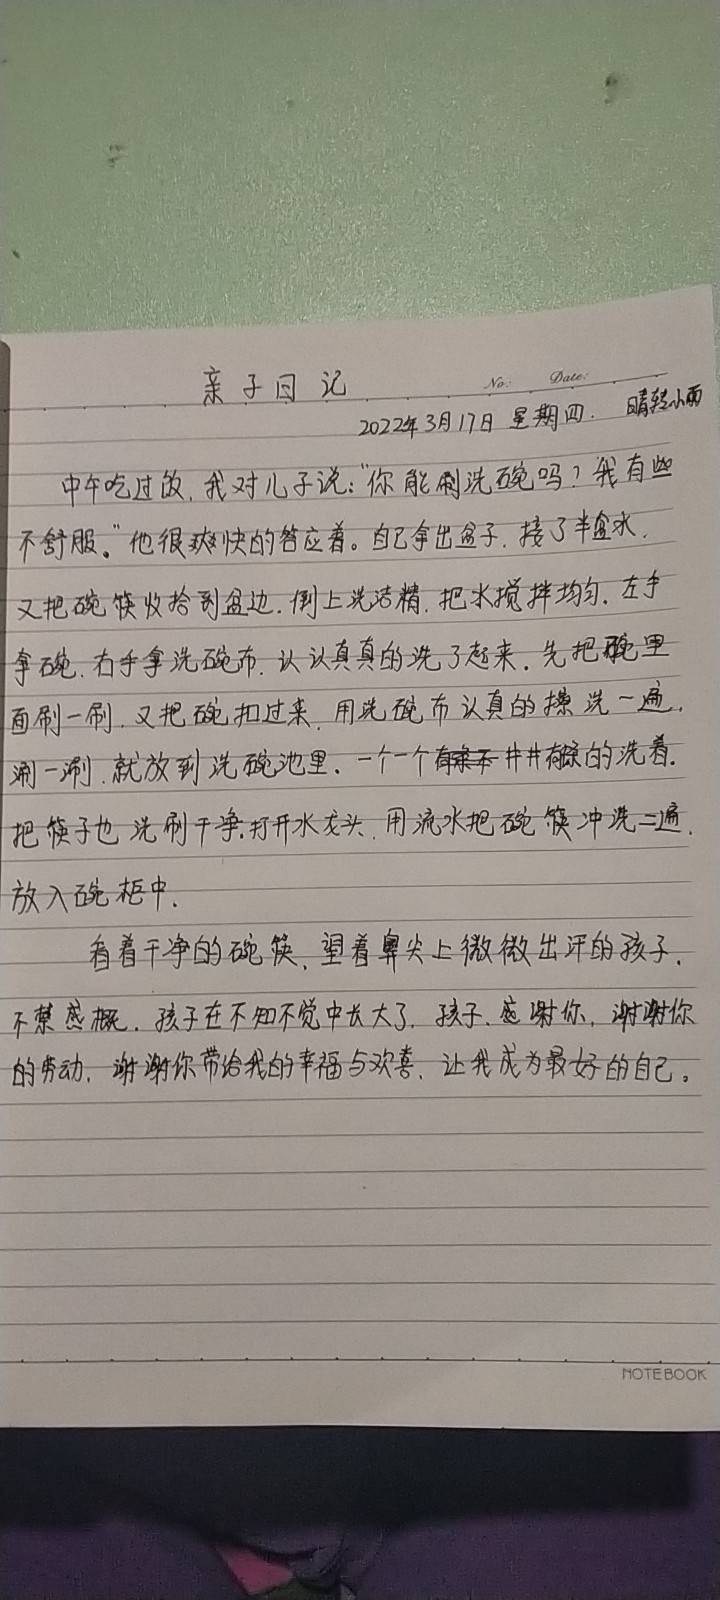 亲子日记
No:
Date:
2022年3月17日 星期四. 晴转小雨
中午吃过饭,我对儿子说:“你能刷洗碗吗?我有些
不舒服。”他很爽快的答应着。自己拿出盆子,接了半盆水,
又把碗筷收拾到盆边,倒上洗洁精,把水搅拌均匀,左手
拿碗,右手拿洗碗布,认认真真的洗了起来,先把碗里
面刷一刷,又把碗扣过来,用洗碗布认真的擦洗一遍,
涮一涮,就放到洗碗池里,一个一个井井有条的洗着.
把筷子也洗刷干净,打开水龙头,用流水把碗筷冲洗二遍,
放入碗柜中.
看着干净的碗筷,望着鼻尖上微微出汗的孩子,
不禁感概,孩子在不知不觉中长大了,孩子,感谢你,谢谢你
的劳动,谢谢你带给我的幸福与欢喜,让我成为最好的自己。
NOTEBOOK